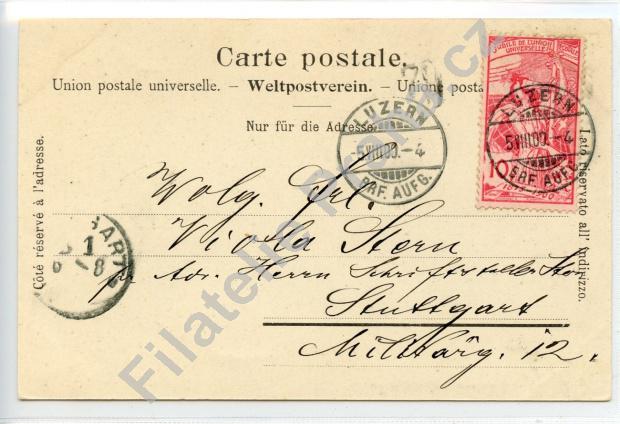 Carte postale.
Union postale universelle. – Weltpostverein. – Unione posta
Nur für die Adresse.
Côté réservé à l'adresse.
Lato riservato all' indirizzo.
JUBILÉ DE L'UNION
POSTALE
UNIVERSELLE
10
1875-1900
LUZERN
5.VIII.00.–4
BRF. AUFG.
LUZERN
5.VIII.00.–4
BRF. AUFG.
Wolg. Frl.
Viola Stern
per Adr. Herrn Schriftsteller Stern
Stuttgart
Militärg. 12.
GART
1
6 –8
Filatelie Praha cz